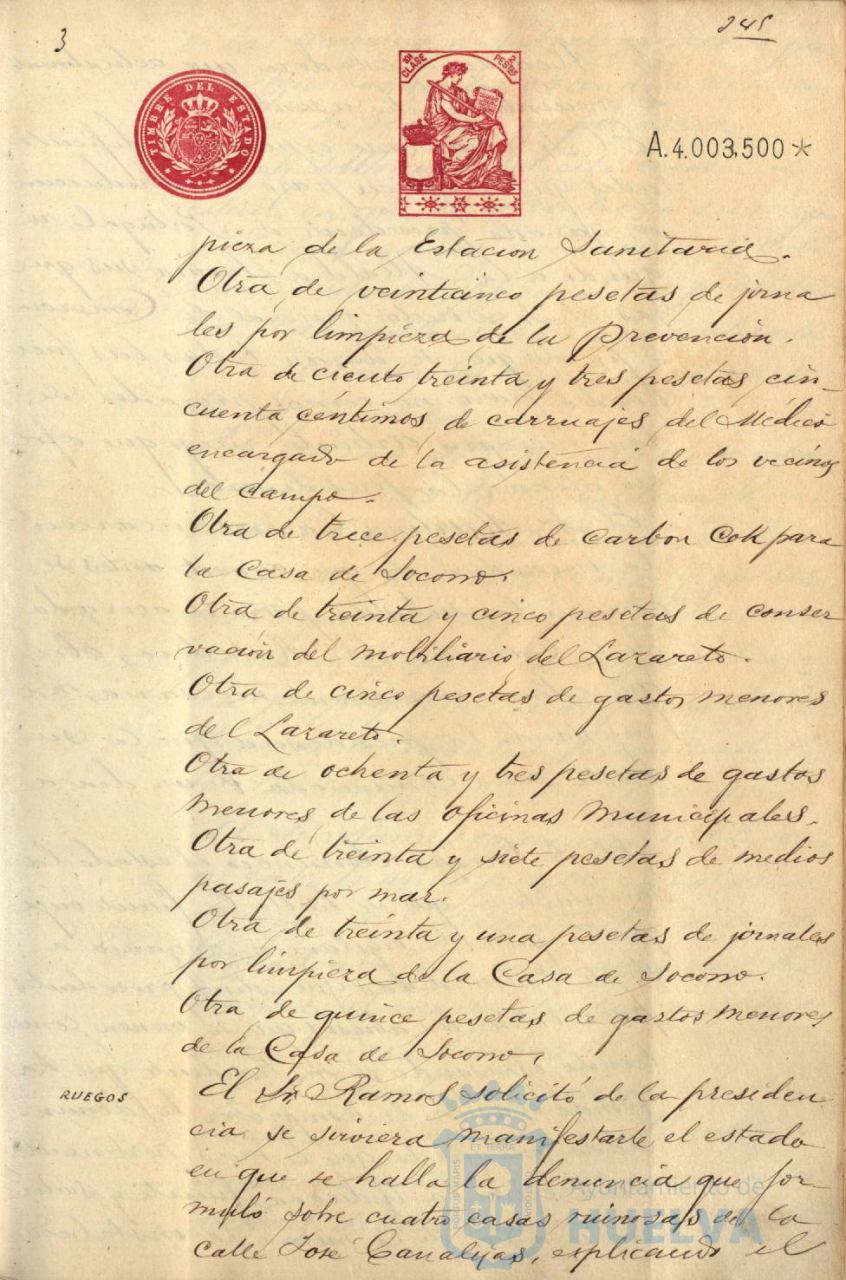 3
245
TIMBRE DEL ESTADO
10ª CLASE
2 PESETAS
A.4.003,500*
pieza de la Estacion Sanitaria.
Otra de veinticinco pesetas de jorna
les por limpieza de la Prevencion.
Otra de ciento treinta y tres pesetas cin-
cuenta céntimos de carruajes del Médico
encargado de la asistencia de los vecinos
del campo.
Otra de trece pesetas de carbon Cok para
la Casa de Socorro.
Otra de treinta y cinco pesetas de conser
vación del mobiliario del Lazareto.
Otra de cinco pesetas de gastos menores
del Lazareto.
Otra de ochenta y tres pesetas de gastos
menores de las oficinas municipales.
Otra de treinta y siete pesetas de medios
pasajes por mar.
Otra de treinta y una pesetas de jornales
por limpieza de la Casa de Socorro.
Otra de quince pesetas de gastos menores
de la Casa de Socorro.
RUEGOS
El Sr Ramos solicitó de la presiden
cia se sirviera manifestarle el estado
en que se halla la denuncia que for-
muló sobre cuatro casas ruinosas de la
calle José Canalejas, explicando el
Ayuntamiento de
HUELVA